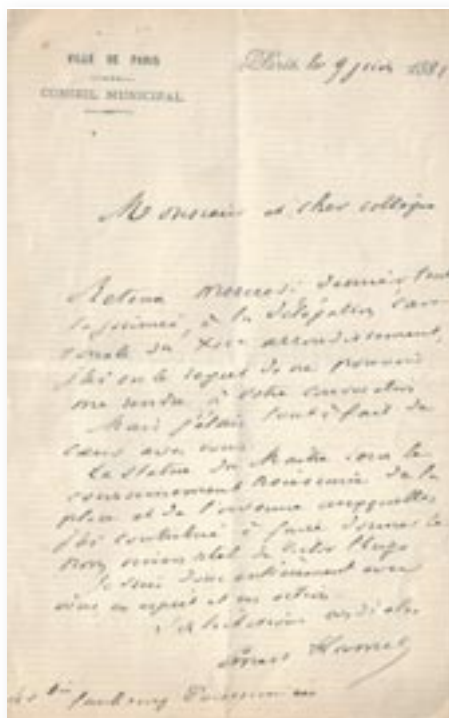 VILLE DE PARIS
CONSEIL MUNICIPAL
Paris le 9 juin 188
Monsieur et cher collègue
Retenu mercredi dernier toute
la journée, à la délégation can-
tonale du XIIe arrondissement,
j'ai eu le regret de ne pouvoir
me rendre à votre
Mais j'étais tout à fait de
cœur avec vous.
La statue du Maître sera le
couronnement nécessaire de la
place et de l'avenue auxquelles
j'ai contribué à faire donner le
nom immortel de Victor Hugo
Je suis donc entièrement avec
vous en esprit et en action.
Salutations cordiales
Ernest Hamel
faubourg Poissonnière